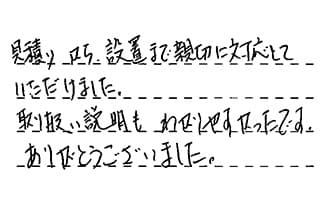 見積りから設置まで親切に対応して
いただけました。
取り扱い説明もわかりやすかったです。
ありがとうございました。